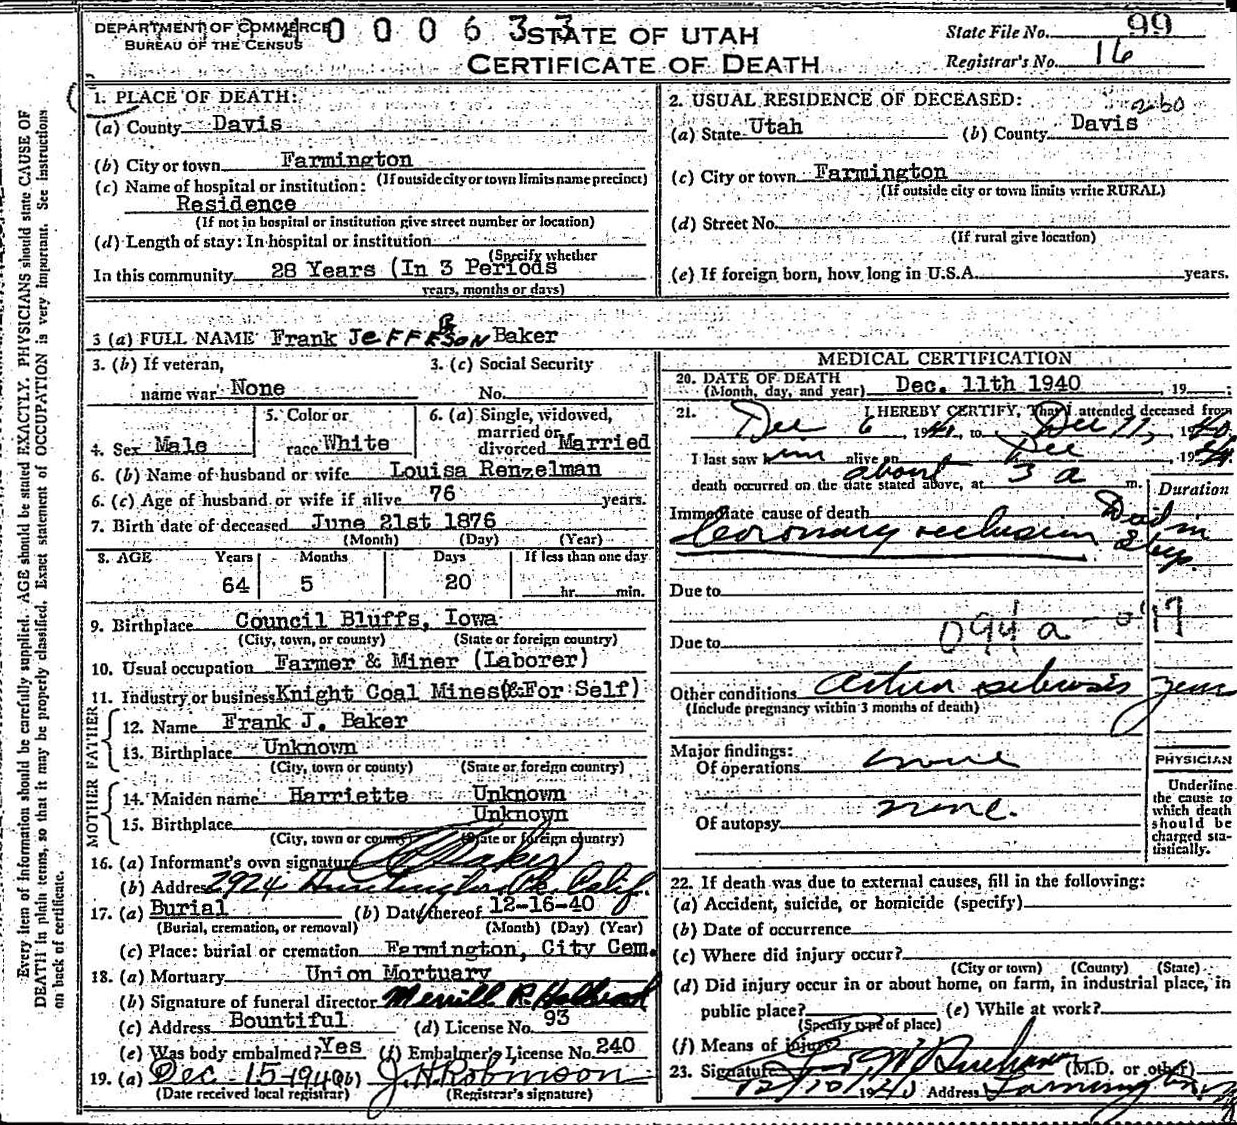 DEPARTMENT OF COMMERCE
BUREAU OF THE CENSUS
0 0 0 6 3 3
STATE OF UTAH
CERTIFICATE OF DEATH
State File No. 99
Registrar's No. 16
1. PLACE OF DEATH:
(a) County Davis
(b) City or town Farmington
(If outside city or town limits name precinct)
(c) Name of hospital or institution:
Residence
(If not in hospital or institution give street number or location)
(d) Length of stay: In hospital or institution
(Specify whether
In this community 28 Years (In 3 Periods
years, months or days)
2. USUAL RESIDENCE OF DECEASED:
(a) State Utah (b) County Davis
(c) City or town Farmington
(If outside city or town limits write RURAL)
(d) Street No.
(If rural give location)
(e) If foreign born, how long in U.S.A. years.
3 (a) FULL NAME Frank JEFFERSON Baker
3. (b) If veteran,
name war None
3. (c) Social Security
No.
4. Sex Male
5. Color or
race White
6. (a) Single, widowed,
married or
divorced Married
6. (b) Name of husband or wife Louisa Renzelman
6. (c) Age of husband or wife if alive 76 years.
7. Birth date of deceased June 21st 1876
(Month) (Day) (Year)
8. AGE Years Months Days If less than one day
64 5 20 hr. min.
9. Birthplace Council Bluffs, Iowa
(City, town, or county) (State or foreign country)
10. Usual occupation Farmer & Miner (Laborer)
11. Industry or business Knight Coal Mines (&For Self)
FATHER
12. Name Frank J. Baker
13. Birthplace Unknown
(City, town or county) (State or foreign country)
MOTHER
14. Maiden name Harriette Unknown
15. Birthplace Unknown
(City, town or county) (State or foreign country)
16. (a) Informant's own signature Baker
(b) Address 2924 Huntington Pk. Calif.
17. (a) Burial (b) Date thereof 12-16-40
(Burial, cremation, or removal) (Month) (Day) (Year)
(c) Place: burial or cremation Farmington, City Cem.
18. (a) Mortuary Union Mortuary
(b) Signature of funeral director Merrill R. Holbrook
(c) Address Bountiful (d) License No. 93
(e) Was body embalmed? Yes (f) Embalmer's License No. 240
19. (a) Dec-15-1940 (b) J.H. Robinson
(Date received local registrar) (Registrar's signature)
MEDICAL CERTIFICATION
20. DATE OF DEATH
(Month, day, and year) Dec. 11th 1940, 19
21. I HEREBY CERTIFY, That I attended deceased from
Dec 6, 19 to Dec 11, 19
I last saw him alive on Dec, 19
about
death occurred on the date stated above, at 3 a m.
Duration
Immediate cause of death
Coronary occlusion Died in
Sleep.
Due to
Due to 094a - 017
Other conditions Arterio sclerosis years
(Include pregnancy within 3 months of death)
Major findings:
Of operations none
Of autopsy none.
PHYSICIAN
Underline
the cause to
which death
should be
charged sta-
tistically.
22. If death was due to external causes, fill in the following:
(a) Accident, suicide, or homicide (specify)
(b) Date of occurrence
(c) Where did injury occur?
(City or town) (County) (State)
(d) Did injury occur in or about home, on farm, in industrial place, in
public place? (e) While at work?
(Specify type of place)
(f) Means of injury?
23. Signature (M.D. or other)
Address Farmington
Every item of Information should be carefully supplied. AGE should be stated EXACTLY. PHYSICIANS should state CAUSE OF
DEATH in plain terms, so that it may be properly classified. Exact statement of OCCUPATION is very important. See Instructions
on back of certificate.